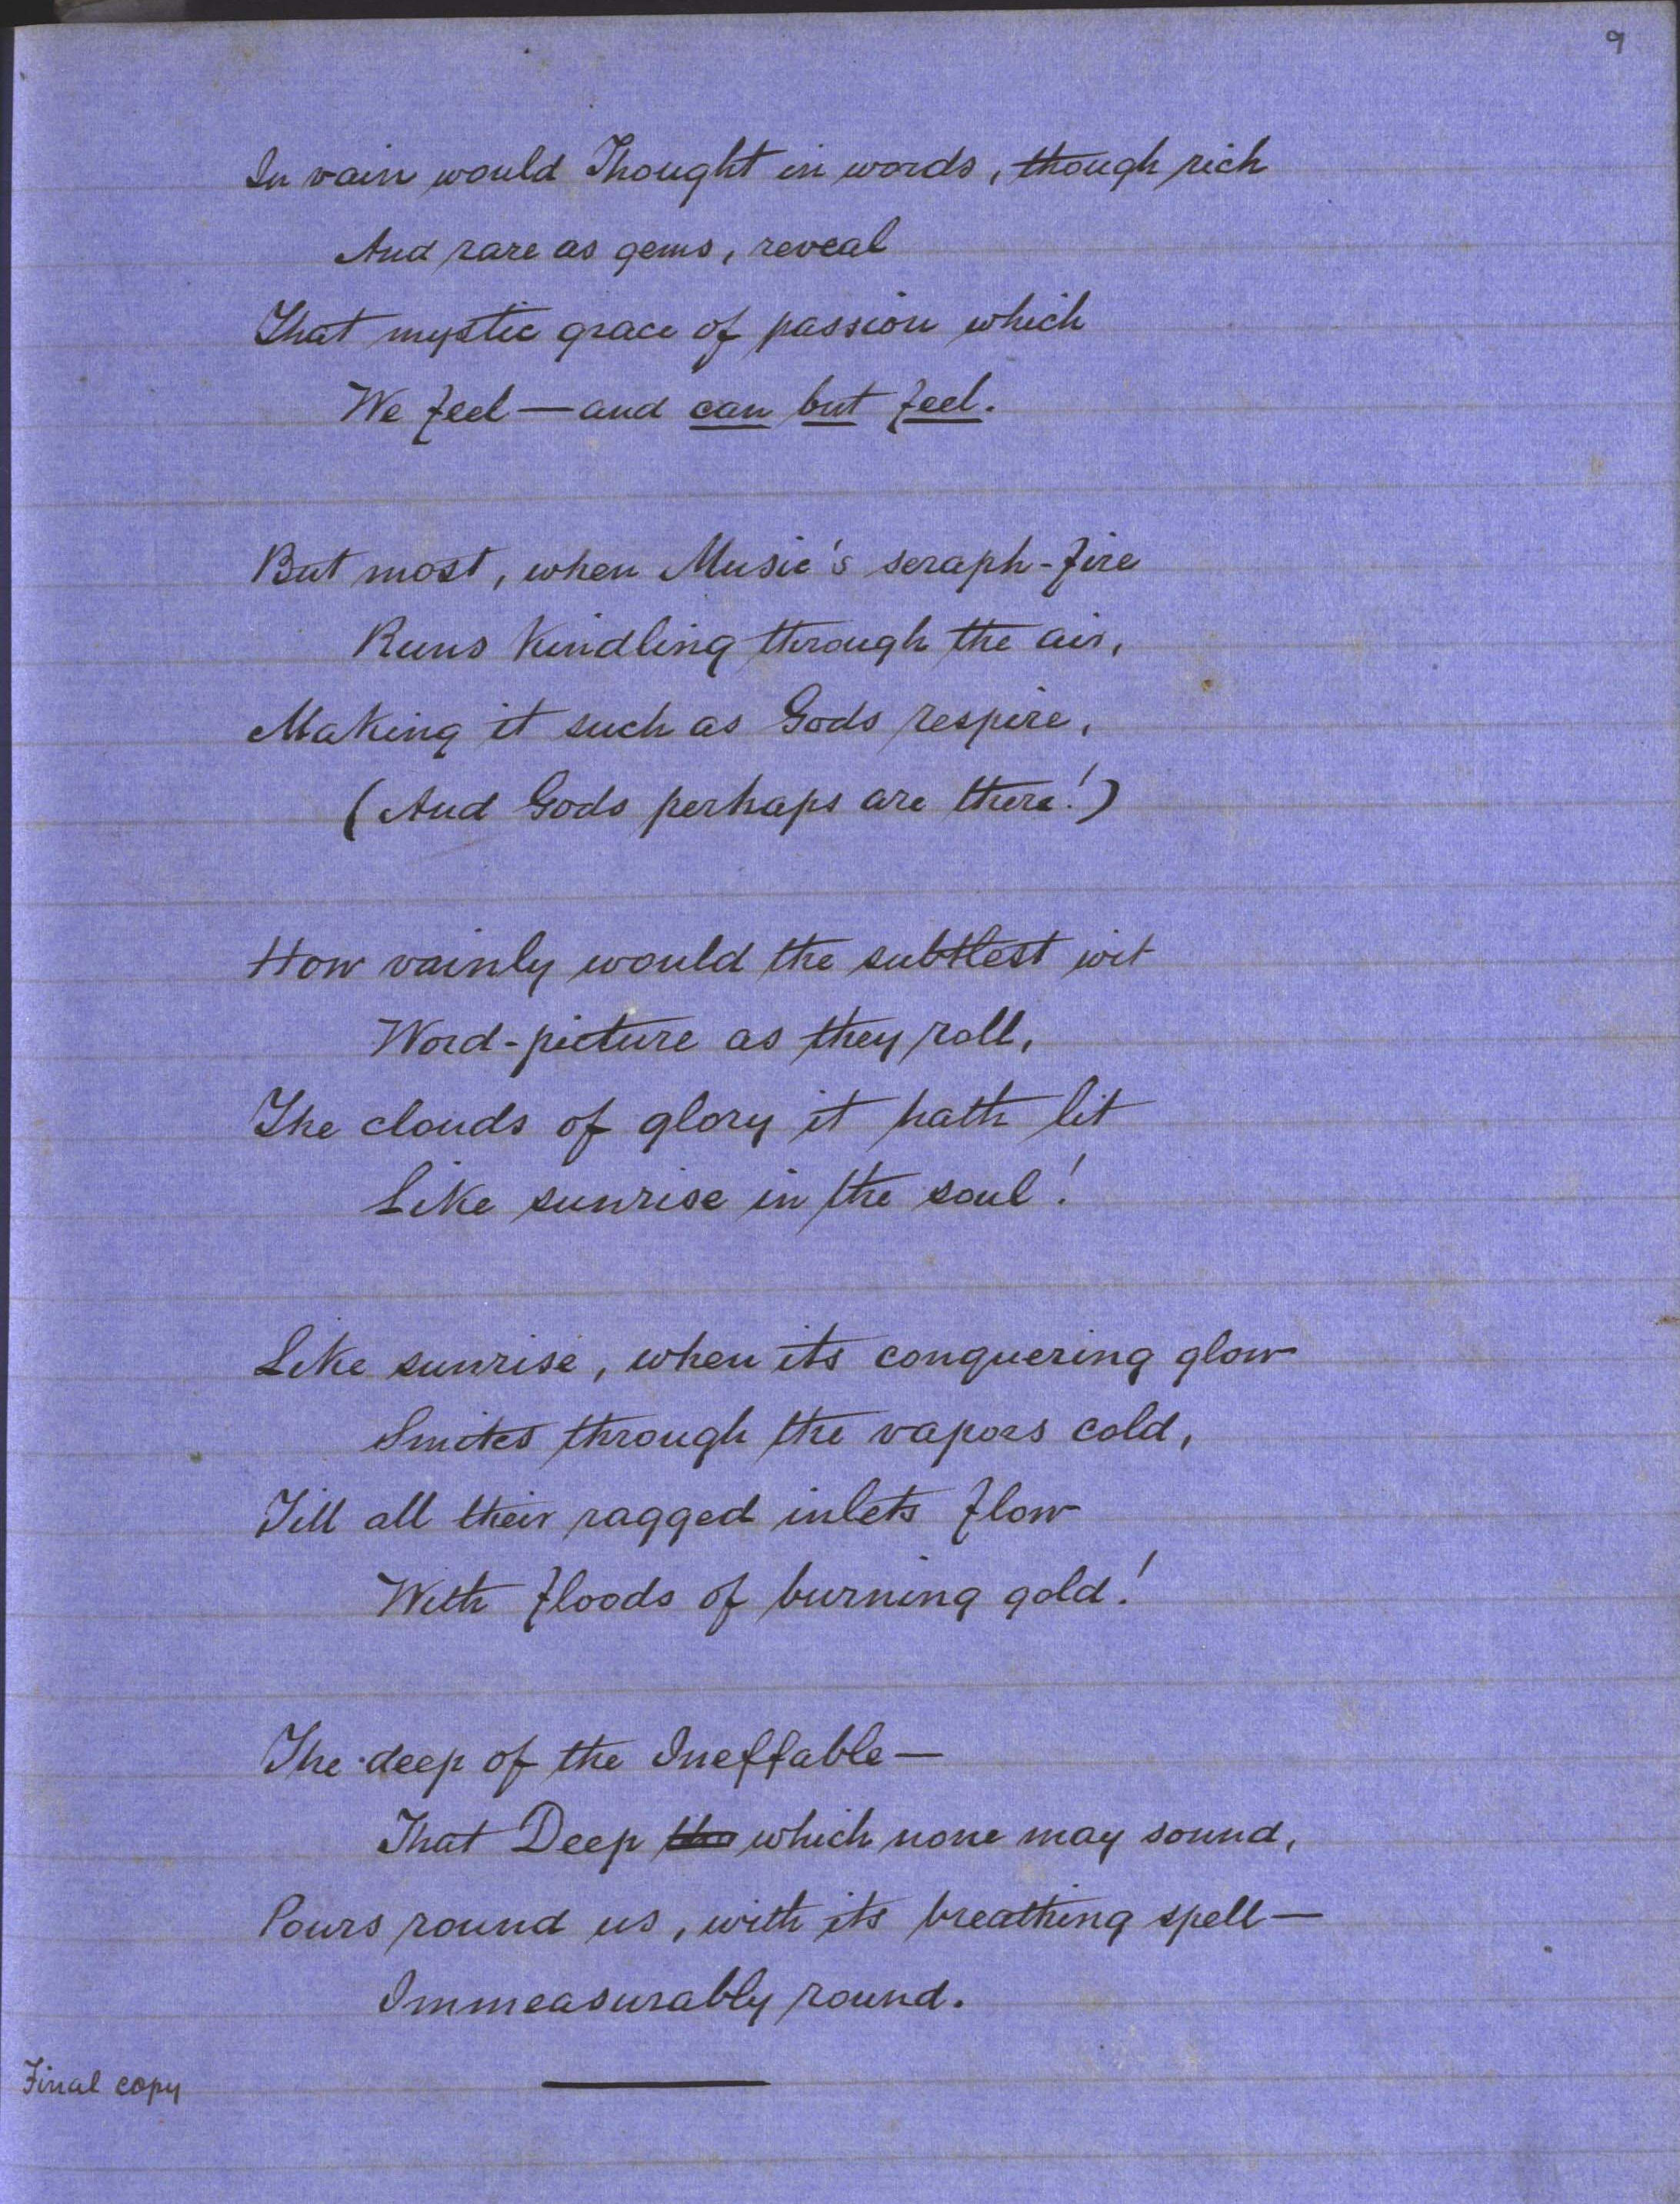 9
In vain would Thought in words, though rich
And rare as gems, reveal
That mystic grace of passion which
We feel—and can but feel.
But most, when Music's seraph-fire
Runs kindling through the air,
Making it such as Gods respire,
(And Gods perhaps are there!)
How vainly would the subtlest wit
Word-picture as they roll,
The clouds of glory it hath lit
Like sunrise in the soul!
Like sunrise, when its conquering glow
Smites through the vapors cold,
Till all their ragged inlets flow
With floods of burning gold!
The deep of the Ineffable—
That Deep the which none may sound,
Pours round us, with its breathing spell—
Immeasurably round.
Final copy